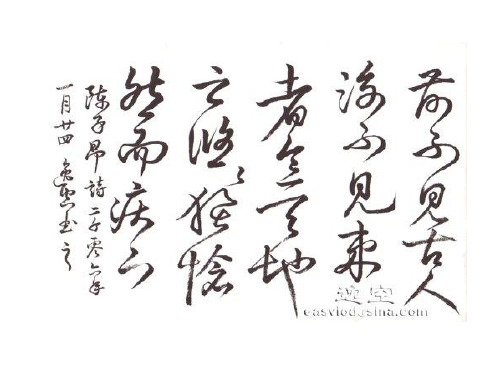 前不見古人
後不見来
者念天地
之悠々獨愴
然而涕下
陳子昂詩二千零六年
一月廿四 書之